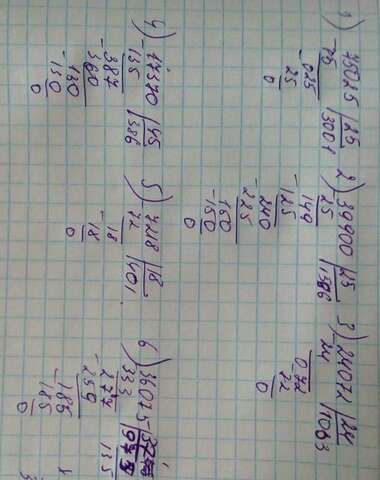 1) 75025 | 25
-75 | 3001
-025
25
0
2) 39900 | 25
25 | 1596
149
-125
240
-225
150
-150
0
3) 24072 | 24
24 | 1003
072
72
0
4) 17370 | 45
-135 | 386
-387
360
0
5) 7218 | 18
72 | 401
18
-18
0
6) 36075
333
-277
259
-185
185
0
135